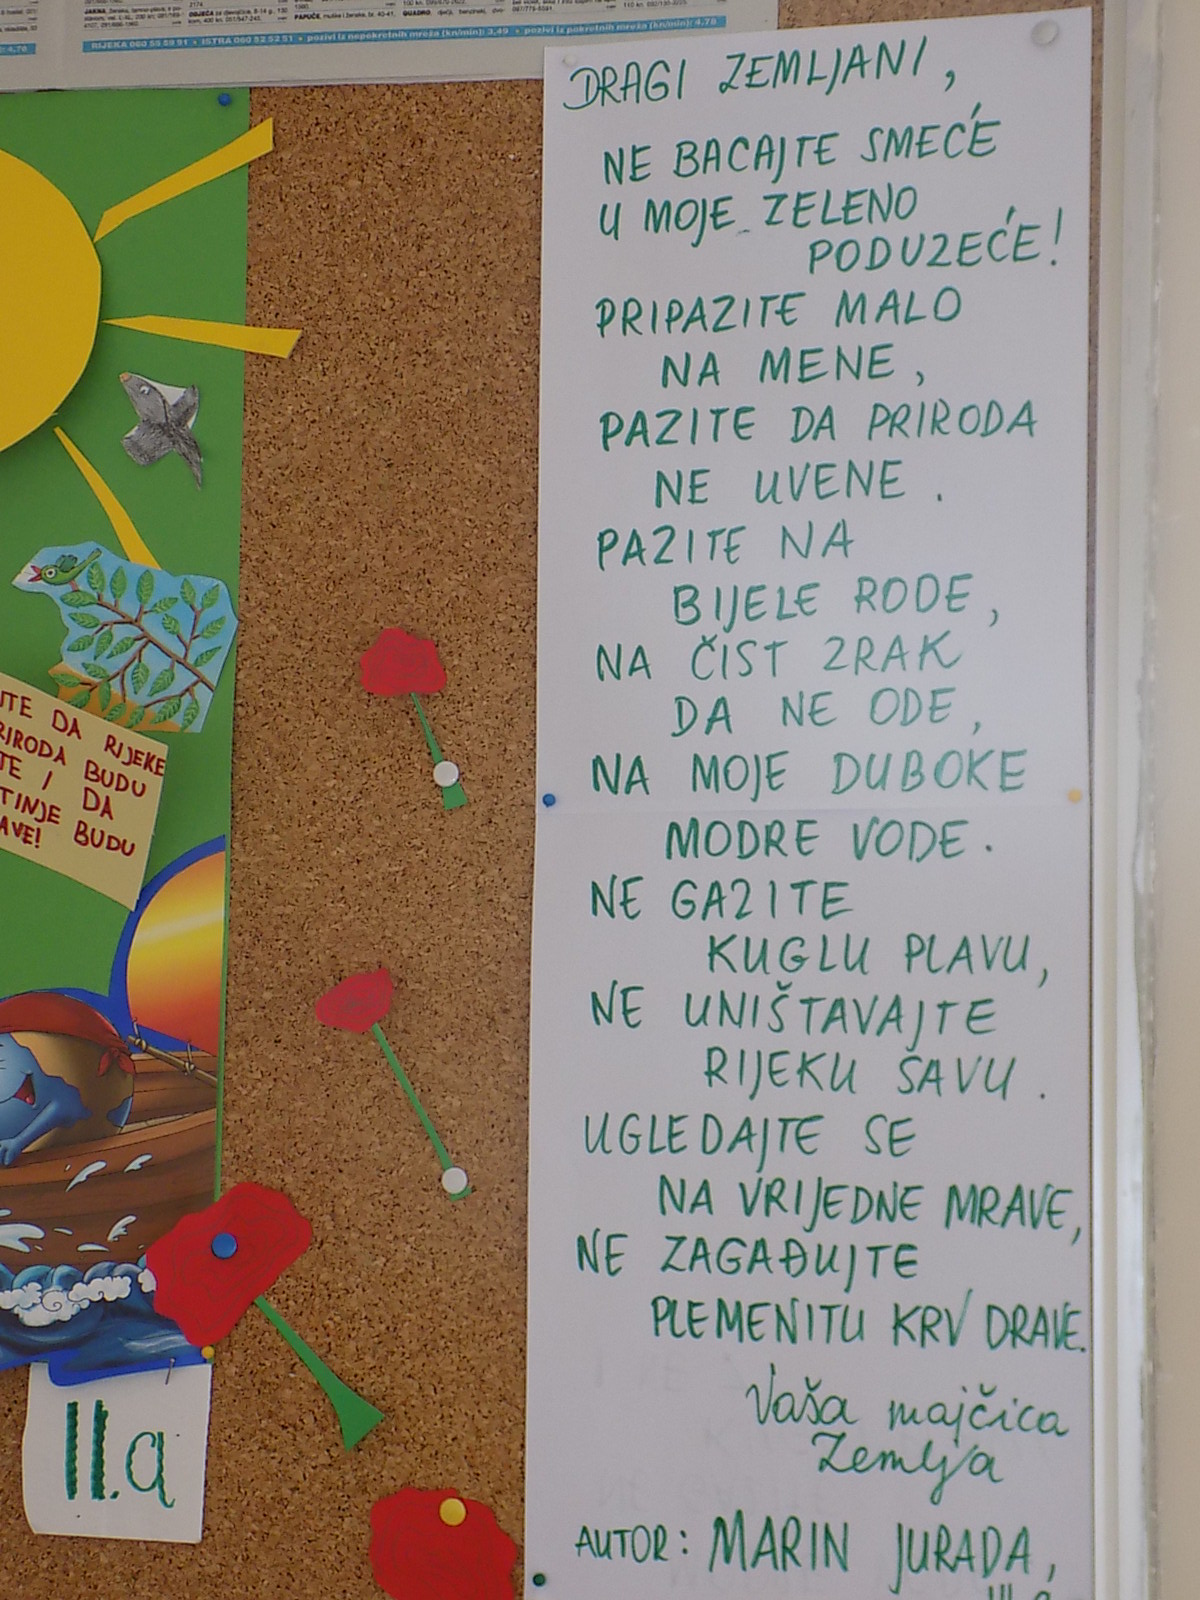 RIJEKA 060 55 55 91 • ISTRA 060 52 52 51 • pozivi iz nepokretnih mreža (kn/min): 3,49 • pozivi iz pokretnih mreža (kn/min): 4,78
DRAGI ZEMLJANI,
NE BACAJTE SMEĆE
U MOJE ZELENO
PODUZEĆE!
PRIPAZITE MALO
NA MENE,
PAZITE DA PRIRODA
NE UVENE.
PAZITE NA
BIJELE RODE,
NA ČIST ZRAK
DA NE ODE,
NA MOJE DUBOKE
MODRE VODE.
NE GAZITE
KUGLU PLAVU,
NE UNIŠTAVAJTE
RIJEKU SAVU.
UGLEDAJTE SE
NA VRIJEDNE MRAVE,
NE ZAGAĐUJTE
PLEMENITU KRV DRAVE.
Vaša majčica
Zemlja
AUTOR: MARIN JURADA,
JTE DA RIJEKE
RIRODA BUDU
TE I DA
TINJE BUDU
AVE!
II.a